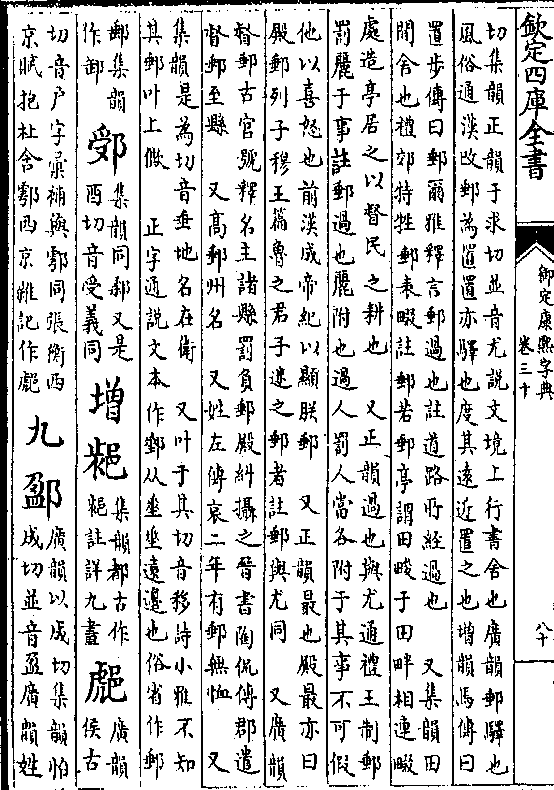 欽定四庫全書
御定康熙字典
卷三十
八十
切集韻正韻于求切並音尤説文境上行書舍也廣韻郵驛也
風俗通漢改郵為置置亦驛也度其遠近置之也增韻馬傳曰
置步傳曰郵爾雅釋言郵過也註道路所經過也 又集韻田
間舍也禮郊特牲郵表畷註郵若郵亭謂田畯于田畔相連畷
處造亭居之以督民之耕也 又正韻過也與尤通禮王制郵
罰麗于事註郵過也麗附也過人罰人當各附于其事不可假
他以喜怒也前漢成帝紀以顯朕郵 又正韻最也殿最亦曰
殿郵列子穆王篇魯之君子迷之郵者註郵與尤同 又廣韻
督郵古官號釋名主諸縣罰負郵殿糾攝之晉書陶侃傳郡遣
督郵至縣 又高郵州名 又姓左傳哀二年有郵無恤 又
集韻是為切音垂地名在衛 又叶于其切音移詩小雅不知
其郵叶上僛 正字通説文本作郵从垂垂遠邊也俗省作郵
郵集韻
作卸
䣋
集韻同郄又是
酉切音受義同
增
䣝
集韻都古作
䣝註詳九畫
䣜
廣韻
侯古
切音户字彙補與鄠同張衡西
京賦抱杜含鄠西京雜記作䣜
九
䣐
廣韻以成切集韻怡
成切並音盈廣韻姓